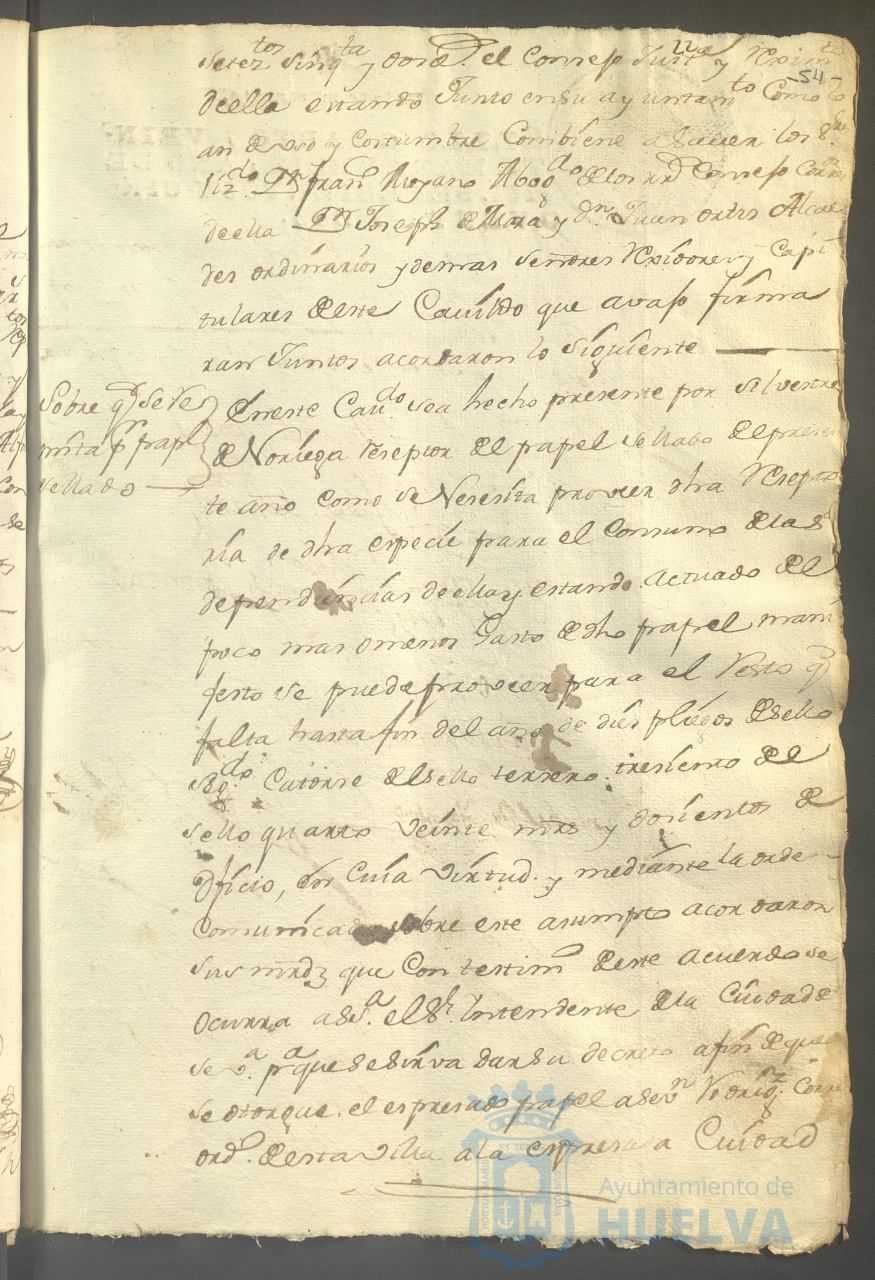 22
-54-
setez.tos sinq.ta y dos. el Consejo Just.a y Reximto
de ella estando Junto en su ayuntam.to Como lo
an de uso y costumbre Combiene a Saver los S.res
Liz.do Dn fran.co Moyano Abog.do de los R.s Consejos Corr.or
de ella Dn Joseph de Mora y d.n Juan ortis Alcal
des ordinarios y demas señores Rexidores y Capi
tulares de este Cavildo que avajo firma
ran Juntos acordaron lo siguiente
Sobre q.e se Re
mita p.r papl
sellado
En este Cau.do se a hecho presente por silvestre
de Noriega Reseptor del papel sellado del presen
te año como se Nesesita proveer dha Resepto
ria de dha especie para el Consumo de las
dependencias de ella y estando actuado del
poco mas o menos Gasto de dho papel mani
festo se puede proveer para el Resto q.e
falta hasta fin del año de dies pliegos de sello
sg.do Catorse del sello tersero tresientos del
sello quarto veinte mrs y dosientos de
Oficio, en Cuia virtud y mediante la orden
Comunicada sobre este asumpto acordaron
sus mrds que Con testim.o de este acuerdo se
Ocurra a S S.a el S.r Intendente de la Ciudad de
Se.a p.a que se sirva dar su decreto a fin de que
se otorgue el espresado papel a Sev.n Rodrig.z Corre
ord.o de esta villa a la espresada Ciudad
Ayuntamiento de
HUELVA